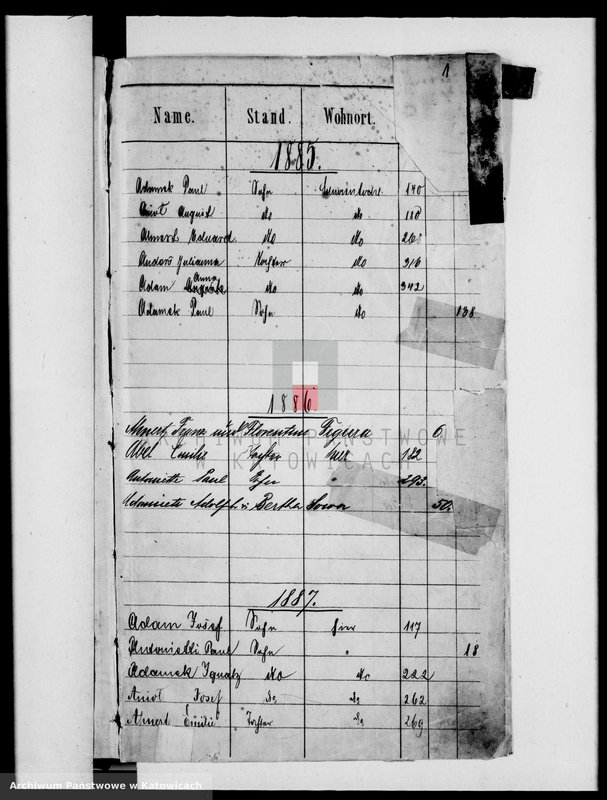 1
Name. Stand. Wohnort.
1885.
Adamek Paul Sohn 140
Aniol August do do 180
Ahnert Eduard do do 268
Anders Julianna Tochter do 316
Adam Anna do do 342
Adamek Paul Sohn do 188
1886.
Ahnert und Florentine Figura 6
Abel Emilie Tochter hier 122
Antonietti Paul Sohn " 293.
Adamietz Adolf u. Bertha Sowa 50.
1887.
Adam Josef Sohn hier 117
Antonietti Paul Sohn " 18
Adamek Ignatz do do 222
Aniol Josef do do 262
Ahnert Emilie Tochter do 269
ARCHIWUM PAŃSTWOWE
W KATOWICACH
Archiwum Państwowe w Katowicach